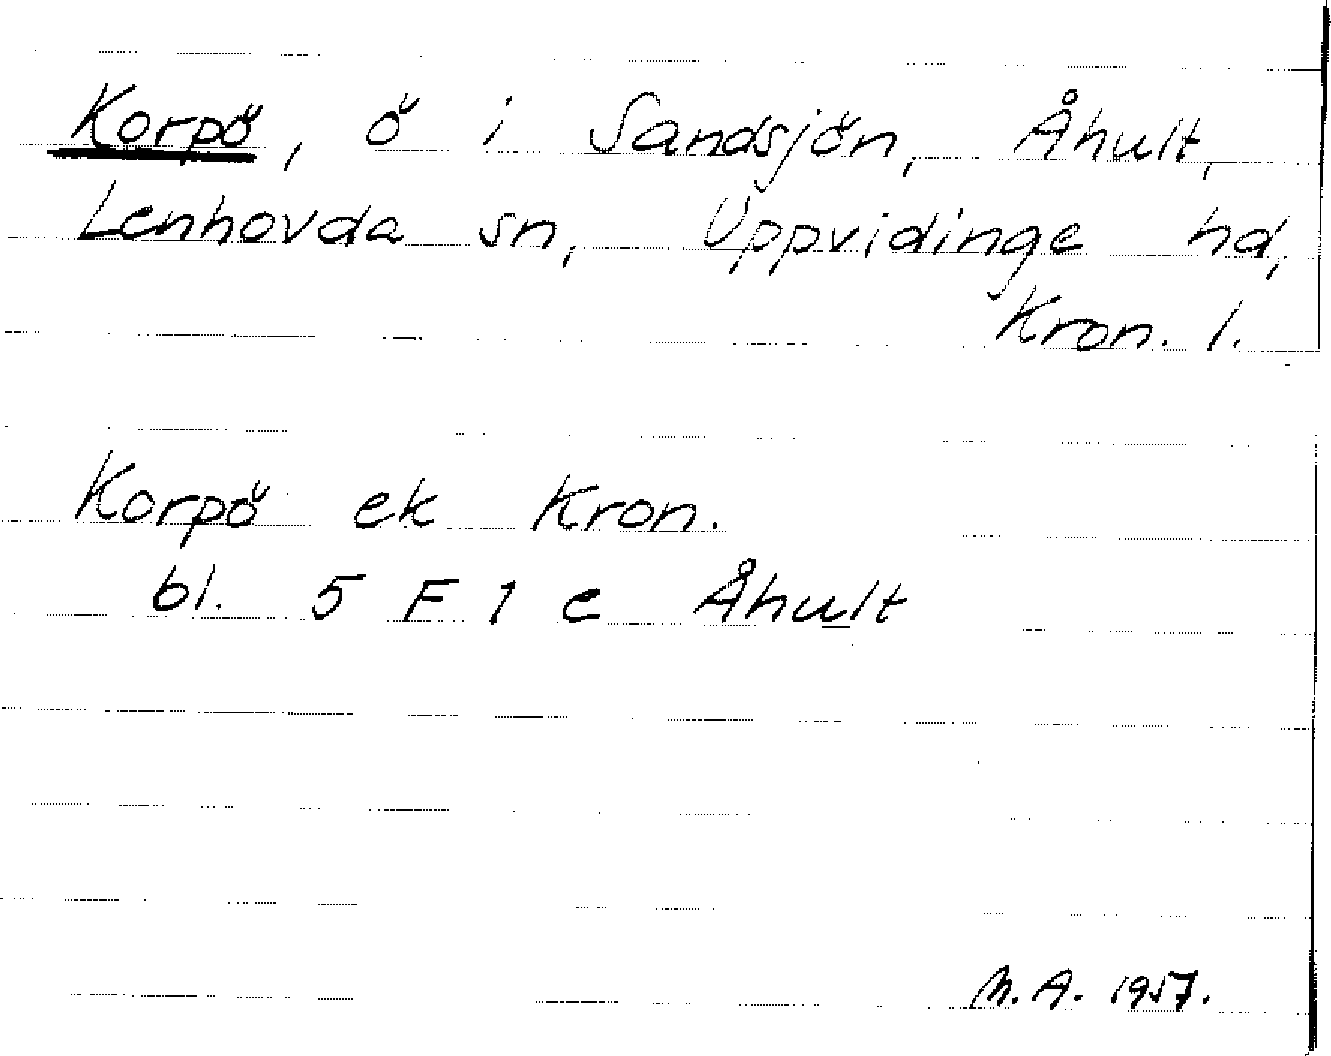 Korpö, ö i Sandsjön, Åhult,
Lenhovda sn, Uppvidinge hd,
Kron. l.
Korpö ek Kron.
bl. 5 F 1 e Åhult
M.A. 1957.